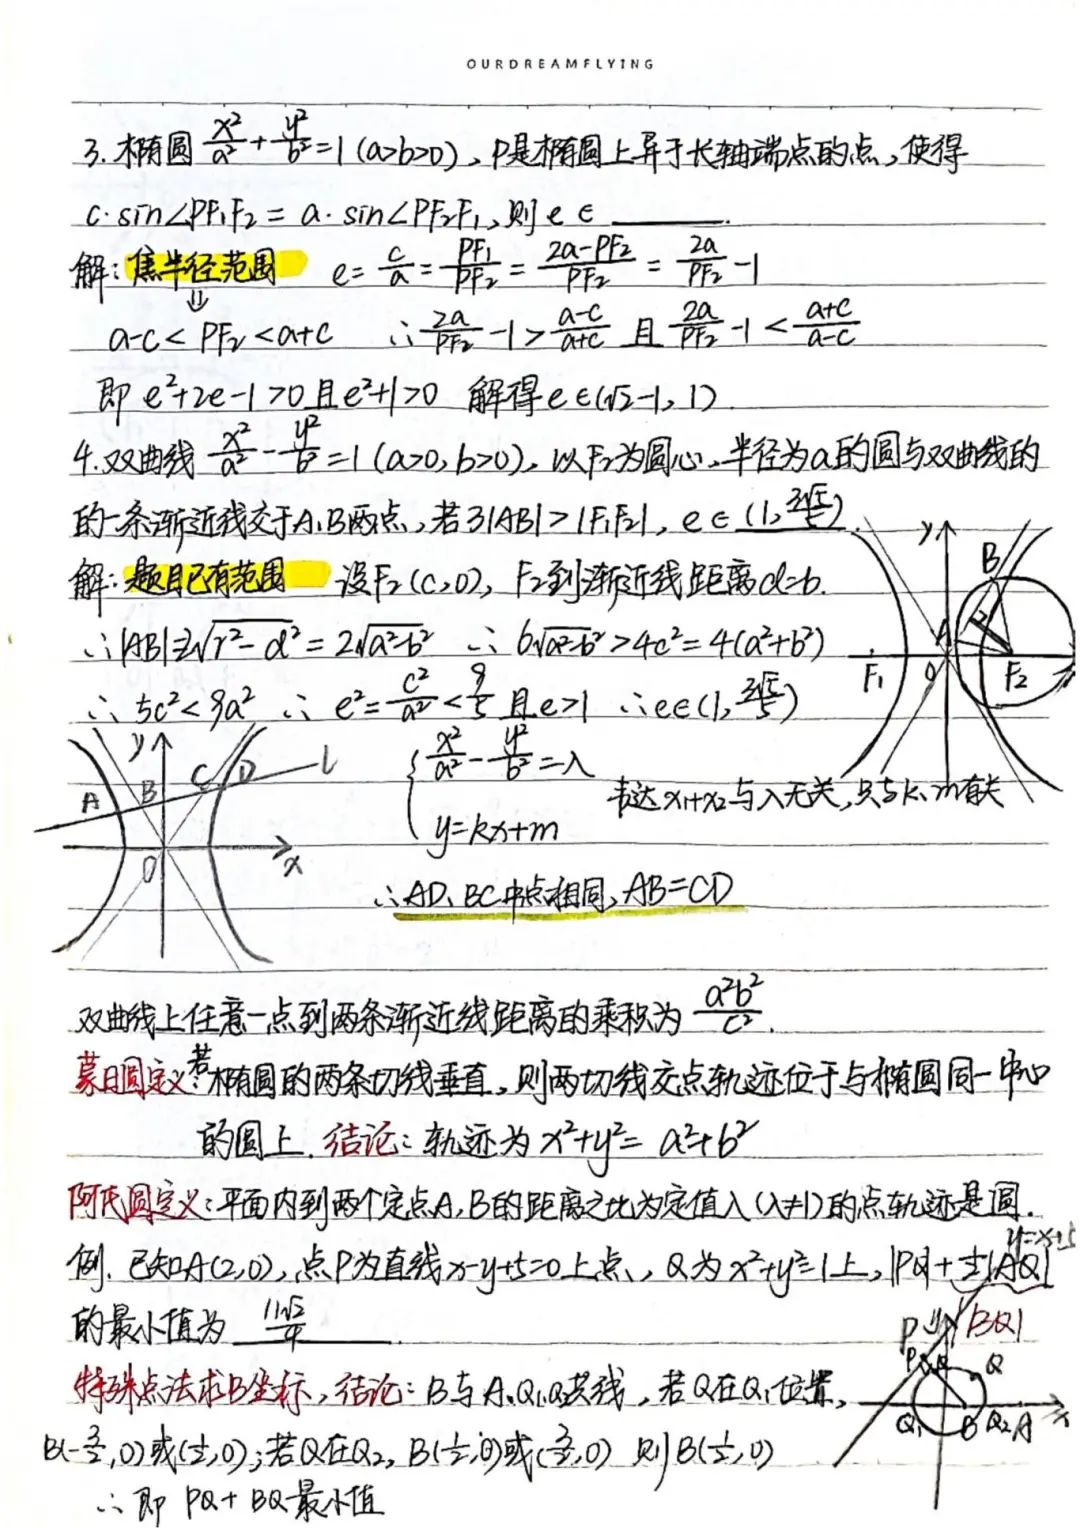 OURDREAMFLYING
3. 椭圆 x²/a² + y²/b² = 1 (a>b>0), P是椭圆上异于长轴端点的点, 使得
c·sin∠PF₁F₂ = a·sin∠PF₂F₁, 则 e ∈ ______.
解: 焦半径范围 e = c/a = PF₁/PF₂ = (2a-PF₂)/PF₂ = 2a/PF₂ - 1
⇓
a-c < PF₂ < a+c ∴ 2a/PF₂ - 1 > (a-c)/(a+c) 且 2a/PF₂ - 1 < (a+c)/(a-c)
即 e²+2e-1>0 且 e²+1>0 解得 e∈(√2-1, 1)
4. 双曲线 x²/a² - y²/b² = 1 (a>0, b>0), 以F₂为圆心, 半径为a的圆与双曲线的
的一条渐近线交于A、B两点, 若3|AB|>|F₁F₂|, e∈ (1, 3√5/5).
解: 题目已有范围 设F₂(c,0), F₂到渐近线距离d=b.
∴|AB|=2√(r²-d²) = 2√(a²-b²) ∴ 6√(a²-b²) > 4c² = 4(a²+b²)
∴ 5c²<9a² ∴ e² = c²/a² < 9/5 且 e>1 ∴ e∈(1, 3√5/5)
y B A F₁ O F₂
y A B C D l O x
{ x²/a² - y²/b² = λ
y=kx+m
韦达 x₁+x₂与λ无关, 只与k、m有关
∴ AD、BC中点相同, AB=CD
双曲线上任意一点到两条渐近线距离的乘积为 a²b²/c².
蒙日圆定义: 若椭圆的两条切线垂直, 则两切线交点轨迹位于与椭圆同一中心
的圆上. 结论: 轨迹为 x²+y² = a²+b²
阿氏圆定义: 平面内到两个定点A, B的距离之比为定值λ(λ≠1)的点轨迹是圆.
y=x+5
例. 已知A(2,0), 点P为直线x-y+5=0上点, Q为x²+y²=1上, |PQ|+½|AQ|
的最小值为 11√2/4 .
|BQ|
特殊点法求B坐标, 结论: B与A、Q₁、Q₂共线, 若Q在Q₁位置,
P y P Q Q Q₁ B Q₂ A x
B(-3/2,0)或(½,0); 若Q在Q₂, B(½,0)或(3/2,0) 则B(½,0)
∴ 即 PQ+BQ最小值